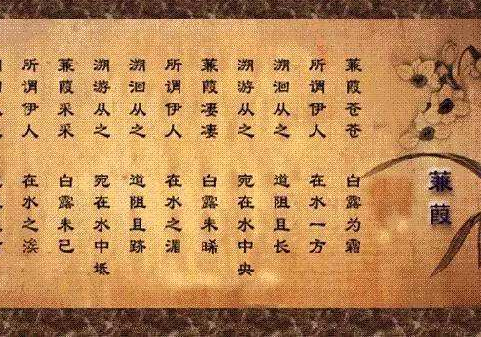 蒹葭
蒹葭苍苍 白露为霜
所谓伊人 在水一方
溯洄从之 道阻且长
溯游从之 宛在水中央
蒹葭凄凄 白露未晞
所谓伊人 在水之湄
溯洄从之 道阻且跻
溯游从之 宛在水中坻
蒹葭采采 白露未已
所谓伊人 在水之涘